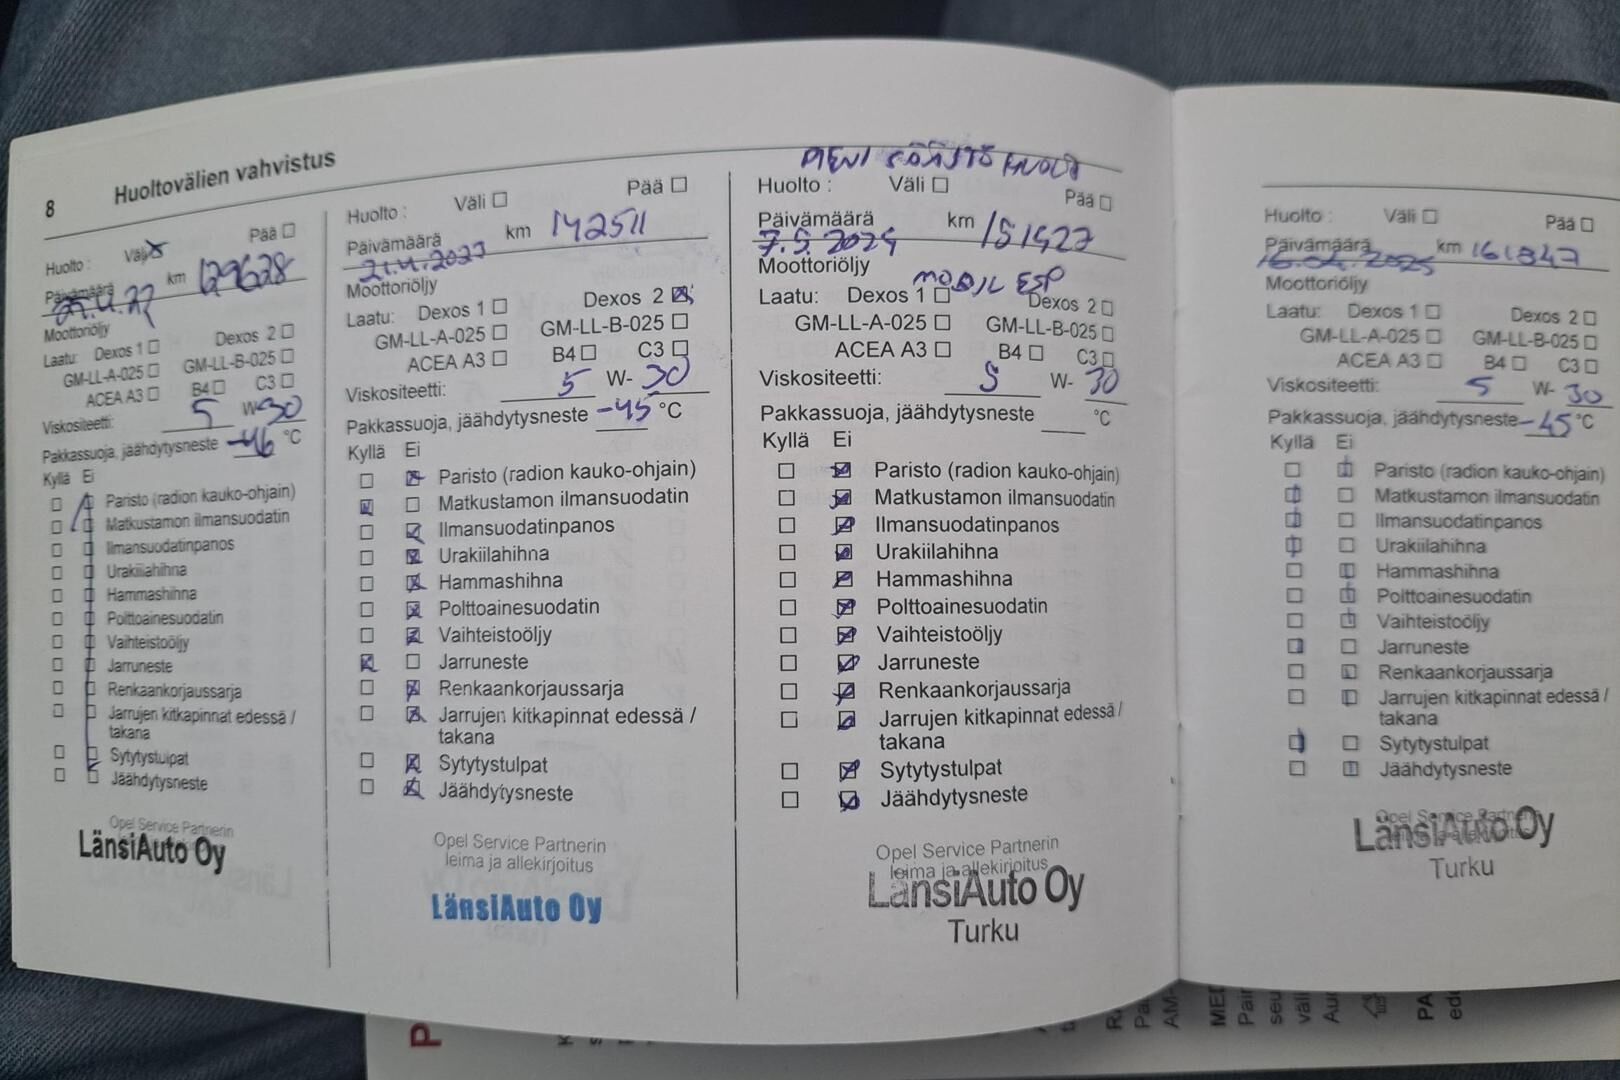 8 Huoltovälien vahvistus
Huolto : Väli ☒ Pää ☐
Päivämäärä km 129628
Moottoriöljy
Laatu: Dexos 1 ☐ Dexos 2 ☐
GM-LL-A-025 ☐ GM-LL-B-025 ☐
ACEA A3 ☐ B4 ☐ C3 ☐
Viskositeetti: 5 W- 30
Pakkassuoja, jäähdytysneste -46 °C
Kyllä Ei
Paristo (radion kauko-ohjain)
Matkustamon ilmansuodatin
Ilmansuodatinpanos
Urakiilahihna
Hammashihna
Polttoainesuodatin
Vaihteistoöljy
Jarruneste
Renkaankorjaussarja
Jarrujen kitkapinnat edessä /
takana
Sytytystulpat
Jäähdytysneste
Opel Service Partnerin
LänsiAuto Oy
Huolto : Väli ☐ Pää ☐
Päivämäärä km 142511
21.4.2023
Moottoriöljy
Laatu: Dexos 1 ☐ Dexos 2 ☒
GM-LL-A-025 ☐ GM-LL-B-025 ☐
ACEA A3 ☐ B4 ☐ C3 ☐
Viskositeetti: 5 W- 30
Pakkassuoja, jäähdytysneste -45 °C
Kyllä Ei
☐ ☒ Paristo (radion kauko-ohjain)
☒ ☐ Matkustamon ilmansuodatin
☐ ☒ Ilmansuodatinpanos
☐ ☒ Urakiilahihna
☐ ☒ Hammashihna
☐ ☒ Polttoainesuodatin
☐ ☒ Vaihteistoöljy
☒ ☐ Jarruneste
☐ ☒ Renkaankorjaussarja
☐ ☒ Jarrujen kitkapinnat edessä /
takana
☐ ☒ Sytytystulpat
☐ ☒ Jäähdytysneste
Opel Service Partnerin
leima ja allekirjoitus
LänsiAuto Oy
PIENI SÄÄSTÖ HUOLTO
Huolto : Väli ☐ Pää ☐
Päivämäärä km 151427
7.5.2024
Moottoriöljy MOBIL ESP
Laatu: Dexos 1 ☐ Dexos 2 ☐
GM-LL-A-025 ☐ GM-LL-B-025 ☐
ACEA A3 ☐ B4 ☐ C3 ☐
Viskositeetti: 5 W- 30
Pakkassuoja, jäähdytysneste °C
Kyllä Ei
☐ ☒ Paristo (radion kauko-ohjain)
☐ ☒ Matkustamon ilmansuodatin
☐ ☒ Ilmansuodatinpanos
☐ ☒ Urakiilahihna
☐ ☒ Hammashihna
☐ ☒ Polttoainesuodatin
☐ ☒ Vaihteistoöljy
☐ ☒ Jarruneste
☐ ☒ Renkaankorjaussarja
☐ ☒ Jarrujen kitkapinnat edessä /
takana
☐ ☒ Sytytystulpat
☐ ☒ Jäähdytysneste
Opel Service Partnerin
leima ja allekirjoitus
LänsiAuto Oy
Turku
Huolto : Väli ☐ Pää ☐
Päivämäärä km 161847
16.04.2025
Moottoriöljy
Laatu: Dexos 1 ☐ Dexos 2 ☐
GM-LL-A-025 ☐ GM-LL-B-025 ☐
ACEA A3 ☐ B4 ☐ C3 ☐
Viskositeetti: 5 W- 30
Pakkassuoja, jäähdytysneste -45 °C
Kyllä Ei
☐ ☒ Paristo (radion kauko-ohjain)
☒ ☐ Matkustamon ilmansuodatin
☒ ☐ Ilmansuodatinpanos
☒ ☐ Urakiilahihna
☐ ☒ Hammashihna
☐ ☒ Polttoainesuodatin
☐ ☒ Vaihteistoöljy
☒ ☐ Jarruneste
☐ ☒ Renkaankorjaussarja
☐ ☒ Jarrujen kitkapinnat edessä /
takana
☒ ☐ Sytytystulpat
☐ ☒ Jäähdytysneste
Opel Service Partnerin
LänsiAuto Oy
Turku